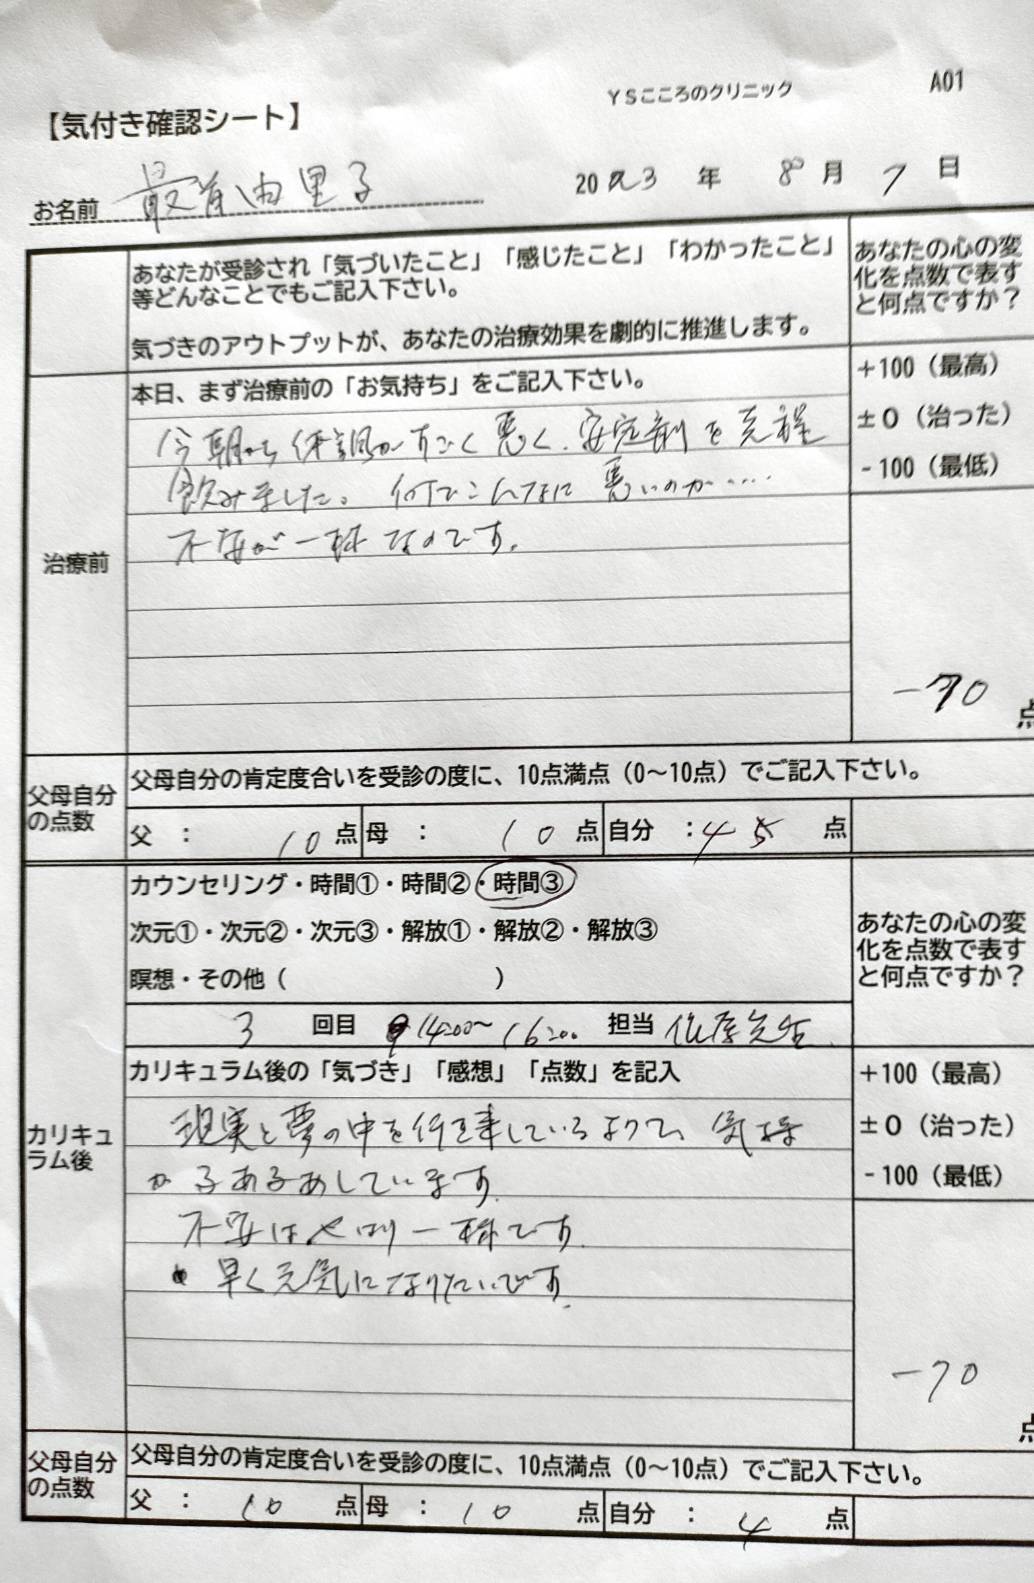 YSこころのクリニック
A01
【気付き確認シート】
お名前 最首由里子 2023年 8月 7日
あなたが受診され「気づいたこと」「感じたこと」「わかったこと」
等どんなことでもご記入下さい。
気づきのアウトプットが、あなたの治療効果を劇的に推進します。
あなたの心の変
化を点数で表す
と何点ですか？
治療前
本日、まず治療前の「お気持ち」をご記入下さい。
今朝から体調がすごく悪く、安定剤を
飲みました。何でこんなに悪いのか……
不安が一杯なのです。
+100（最高）
±0（治った）
-100（最低）
-70
点
父母自分
の点数
父母自分の肯定度合いを受診の度に、10点満点（0〜10点）でご記入下さい。
父 ： 10 点 母 ： 10 点 自分 ： 4 5 点
カリキュ
ラム後
カウンセリング・時間①・時間②・時間③
次元①・次元②・次元③・解放①・解放②・解放③
瞑想・その他（ ）
あなたの心の変
化を点数で表す
と何点ですか？
3 回目 14:00〜16:00 担当 先生
カリキュラム後の「気づき」「感想」「点数」を記入
現実と夢の中を行き来しているようで、気持
不安はやはり一杯です。
早く元気になりたいです。
+100（最高）
±0（治った）
-100（最低）
-70
点
父母自分
の点数
父母自分の肯定度合いを受診の度に、10点満点（0〜10点）でご記入下さい。
父 ： 10 点 母 ： 10 点 自分 ： 4 点